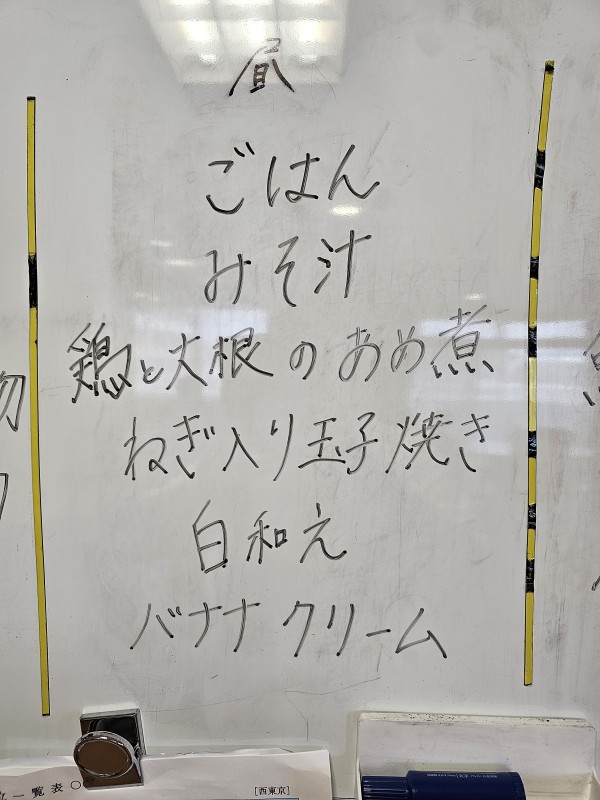 昼
ごはん
みそ汁
鶏と大根のあめ煮
ねぎ入り玉子焼き
白和え
バナナクリーム
物
一覧表
[西東京]